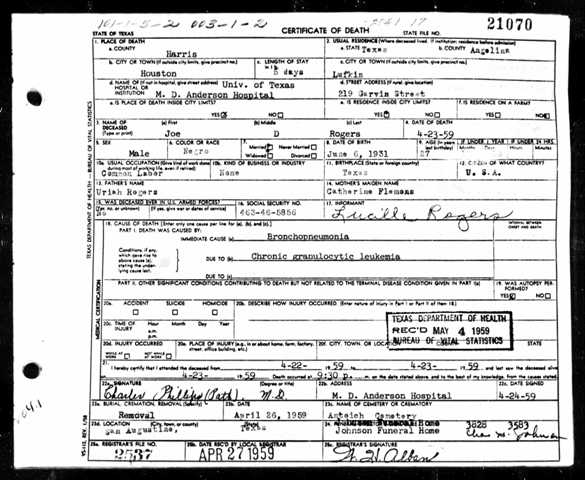 101-1-5-2 003-1-2
21070
STATE OF TEXAS
CERTIFICATE OF DEATH
STATE FILE NO.
1. PLACE OF DEATH
a. COUNTY
Harris
2. USUAL RESIDENCE (Where deceased lived. If institution: residence before admission)
a. STATE Texas b. COUNTY Angelina
b. CITY OR TOWN (If outside city limits, give precinct no.)
Houston
c. LENGTH OF STAY
days
c. CITY OR TOWN (If outside city limits, give precinct no.)
Lufkin
d. NAME OF (If not in hospital, give street address)
HOSPITAL OR
INSTITUTION
Univ. of Texas
M. D. Anderson Hospital
d. STREET ADDRESS (If rural, give location)
219 Garvis Street
e. IS PLACE OF DEATH INSIDE CITY LIMITS?
YES NO
e. IS RESIDENCE INSIDE CITY LIMITS?
YES NO
f. IS RESIDENCE ON A FARM?
YES NO
3. NAME OF
DECEASED
(a) First (b) Middle (c) Last
Joe D Rogers
4. DATE OF DEATH
4-23-59
5. SEX
Male
6. COLOR OR RACE
Negro
7. Married Never Married
Widowed Divorced
8. DATE OF BIRTH
June 6, 1931
9. AGE (In years
last birthday)
27
IF UNDER 1 YEAR
IF UNDER 24 HRS.
10a. USUAL OCCUPATION (Give kind of work done
during most of working life, even if retired)
Common Labor
10b. KIND OF BUSINESS OR INDUSTRY
None
11. BIRTHPLACE (State or foreign country)
Texas
12. CITIZEN OF WHAT COUNTRY?
U. S. A.
13. FATHER'S NAME
Uriah Rogers
14. MOTHER'S MAIDEN NAME
Catherine Flemons
15. WAS DECEASED EVER IN U.S. ARMED FORCES?
(Yes, no, or unknown) (If yes, give war or dates of service)
No
16. SOCIAL SECURITY NO.
463-46-5856
17. INFORMANT
Lucille Rogers
18. CAUSE OF DEATH [Enter only one cause per line for (a), (b), and (c).]
INTERVAL BETWEEN
ONSET AND DEATH
PART I. DEATH WAS CAUSED BY:
IMMEDIATE CAUSE (a)
Bronchopneumonia
Conditions, if any,
which gave rise to
above cause (a),
stating the under-
lying cause last.
DUE TO (b)
Chronic granulocytic leukemia
DUE TO (c)
PART II. OTHER SIGNIFICANT CONDITIONS CONTRIBUTING TO DEATH BUT NOT RELATED TO THE TERMINAL DISEASE CONDITION GIVEN IN PART I(a)
19. WAS AUTOPSY PER-
FORMED?
YES NO
20a. ACCIDENT SUICIDE HOMICIDE
20b. DESCRIBE HOW INJURY OCCURRED (Enter nature of injury in Part I or Part II of item 18)
20c. TIME OF
INJURY
Hour Month Day Year
a.m.
p.m.
TEXAS DEPARTMENT OF HEALTH
REC'D MAY 4 1959
BUREAU OF VITAL STATISTICS
20d. INJURY OCCURRED
WHILE AT
WORK
NOT WHILE
AT WORK
20e. PLACE OF INJURY (e.g., in or about home, farm, factory,
street, office building, etc.)
20f. CITY, TOWN, OR LOCATION
21. I hereby certify that I attended the deceased from 4-22- 1959 to 4-23- 1959 and last saw the deceased alive
on 4-23- 1959 Death occurred at 9:30 p. m. on the date stated above, and to the best of my knowledge, from the causes stated.
22a. SIGNATURE (Degree or title)
Charles Phillips (Path) M.D.
22b. ADDRESS
M. D. Anderson Hospital
22c. DATE SIGNED
4-24-59
23a. BURIAL, CREMATION, REMOVAL (Specify)
Removal
23b. DATE
April 26, 1959
23c. NAME OF CEMETERY OR CREMATORY
Antioch Cemetery
23d. LOCATION
San Augustine, Texas
Johnson Funeral Home
3828 3583
25a. REGISTRAR'S FILE NO.
2537
25b. DATE REC'D BY LOCAL REGISTRAR
APR 27 1959
25c. REGISTRAR'S SIGNATURE
TEXAS DEPARTMENT OF HEALTH—BUREAU OF VITAL STATISTICS
MEDICAL CERTIFICATION